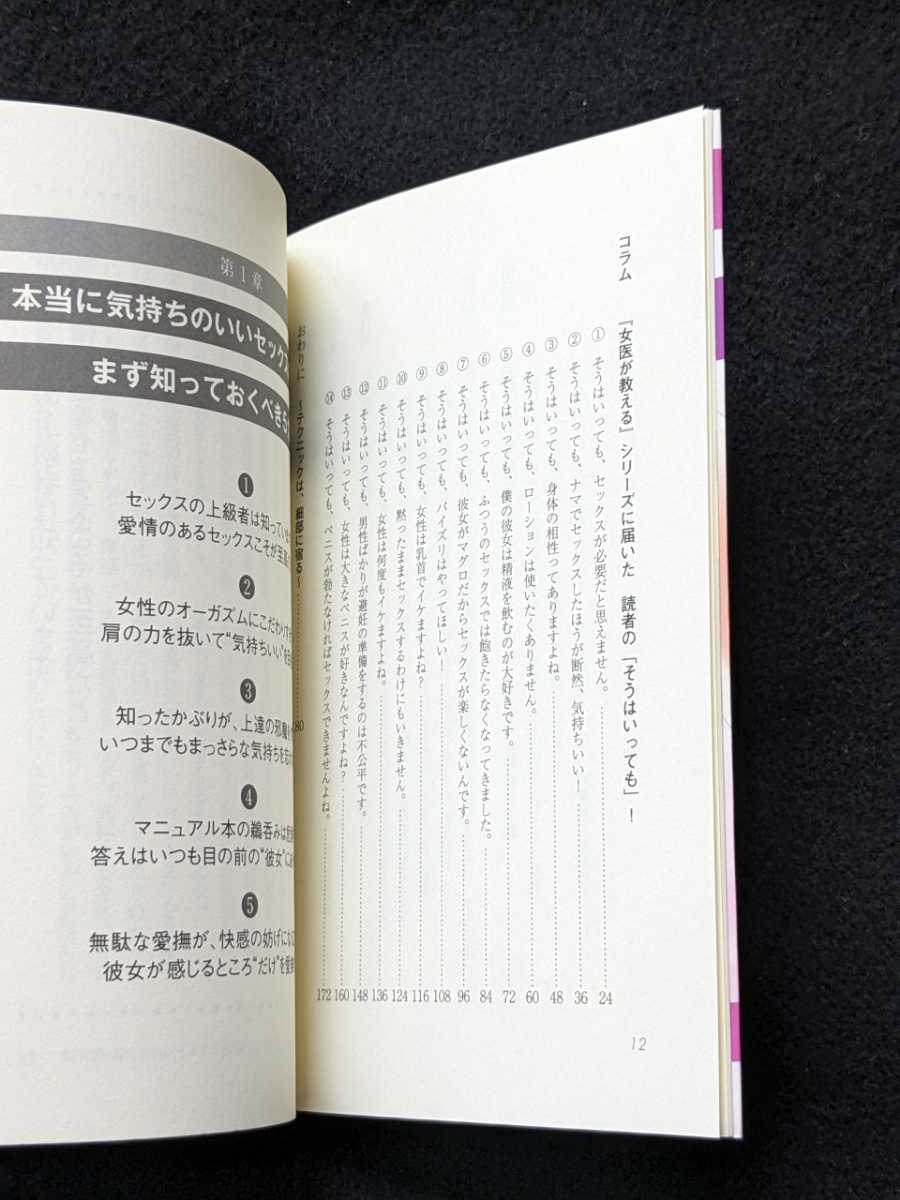 コラム　『女医が教える』シリーズに届いた　読者の「そうはいっても」！
① そうはいっても、セックスが必要だと思えません。 24
② そうはいっても、ナマでセックスしたほうが断然、気持ちいい！ 36
③ そうはいっても、身体の相性ってありますよね。 48
④ そうはいっても、ローションは使いたくありません。 60
⑤ そうはいっても、僕の彼女は精液を飲むのが大好きです。 72
⑥ そうはいっても、ふつうのセックスでは飽きたらなくなってきました。 84
⑦ そうはいっても、彼女がマグロだからセックスが楽しくないんです。 96
⑧ そうはいっても、パイズリはやってほしい！ 108
⑨ そうはいっても、女性は乳首でイケますよね？ 116
⑩ そうはいっても、黙ったままセックスするわけにもいきません。 124
⑪ そうはいっても、女性は何度もイケますよね。 136
⑫ そうはいっても、男性ばかりが避妊の準備をするのは不公平です。 148
⑬ そうはいっても、女性は大きなペニスが好きなんですよね？ 160
⑭ そうはいっても、ペニスが勃たなければセックスできませんよね。 172
おわりに　～テクニックは、細部に宿る～ 80
12
第1章
本当に気持ちのいいセック
まず知っておくべき
❶
セックスの上級者は知ってい
愛情のあるセックスこそが至
❷
女性のオーガズムにこだわり
肩の力を抜いて“気持ちいい”を
❸
知ったかぶりが、上達の邪魔
いつまでもまっさらな気持ちを忘
❹
マニュアル本の鵜呑みは
答えはいつも目の前の“彼女”に
❺
無駄な愛撫が、快感の妨げに
彼女が感じるところ“だけ”を愛